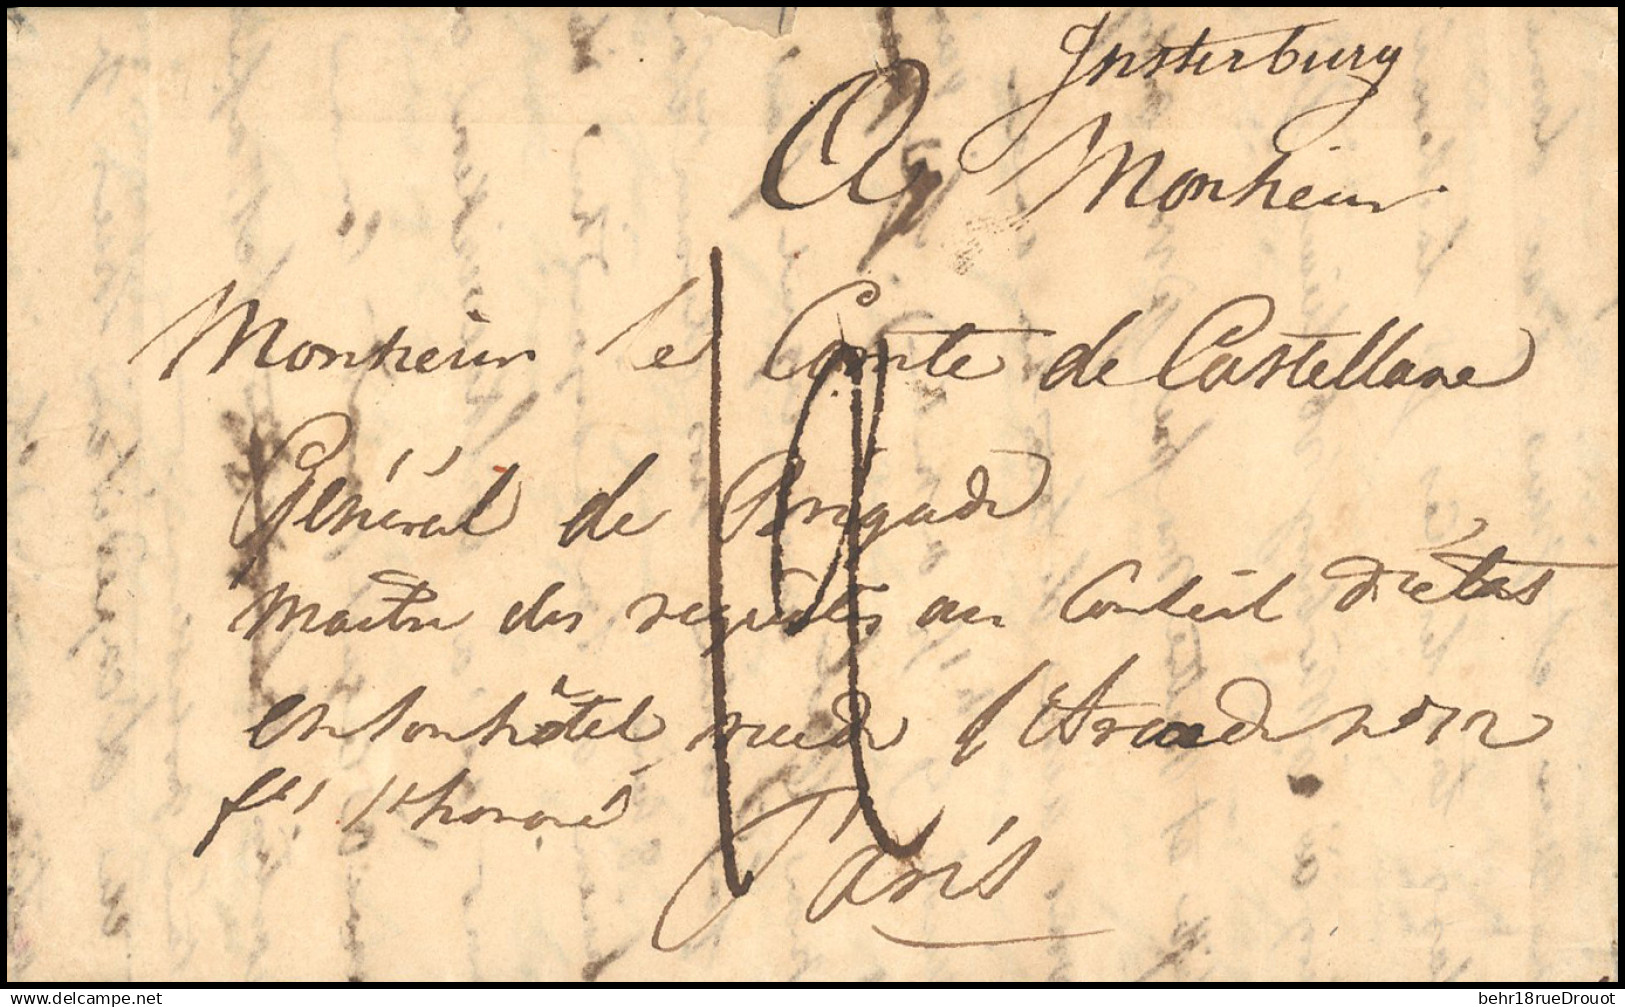 Insterburg
A Monsieur
Monsieur le Comte de Castellane
Général de Brigade
maitre des requêtes au Conseil d'état
en son hôtel rue de l'Arcade no 12
fg St honoré
Paris
behr18rueDrouot